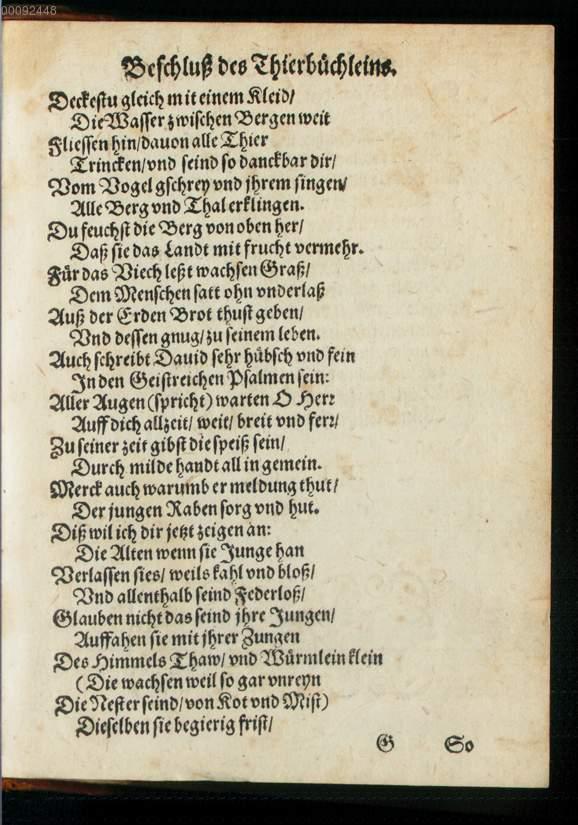 00092448
Beschluß des Thierbüchleins.
Deckestu gleich mit einem Kleid/
Die Wasser zwischen Bergen weit
Fliessen hin/dauon alle Thier
Trincken/vnd seind so danckbar dir/
Vom Vogel gschrey vnd jhrem singen/
Alle Berg vnd Thal erklingen.
Du feuchst die Berg von oben her/
Daß sie das Landt mit frucht vermehr.
Für das Viech leßt wachsen Graß/
Dem Menschen satt ohn vnderlaß
Auß der Erden Brot thust geben/
Vnd dessen gnug/zu seinem leben.
Auch schreibt Dauid sehr hübsch vnd fein
In den Geistreichen Psalmen sein:
Aller Augen (spricht) warten O Herr
Auff dich allzeit/ weit/ breit vnd ferr/
Zu seiner zeit gibst die speiß sein/
Durch milde handt all in gemein.
Merck auch warumb er meldung thut/
Der jungen Raben sorg vnd hut.
Diß wil ich dir jetzt zeigen an:
Die Alten wenn sie Junge han
Verlassen sies/ weils kahl vnd bloß/
Vnd allenthalb seind Federloß/
Glauben nicht das seind jhre Jungen/
Auffahen sie mit jhrer Zungen
Des Himmels Thaw/ vnd Würmlein klein
(Die wachsen weil so gar vnreyn
Die Nester seind/von Kot vnd Mist)
Dieselben sie begierig frist/
G So